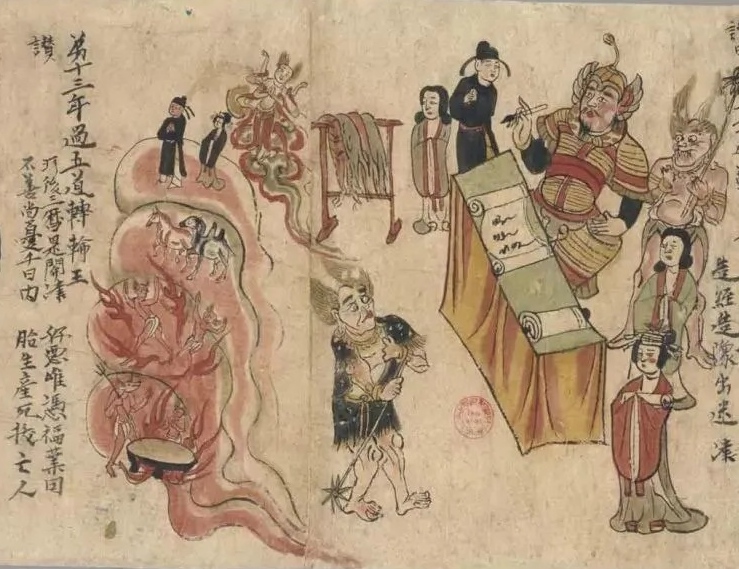 造經造像出迷津
弟十三年過五道轉輪王
讃
後三歷是開津 好惡唯憑福業因
不善尚憂千日內 胎生產死拔亡人